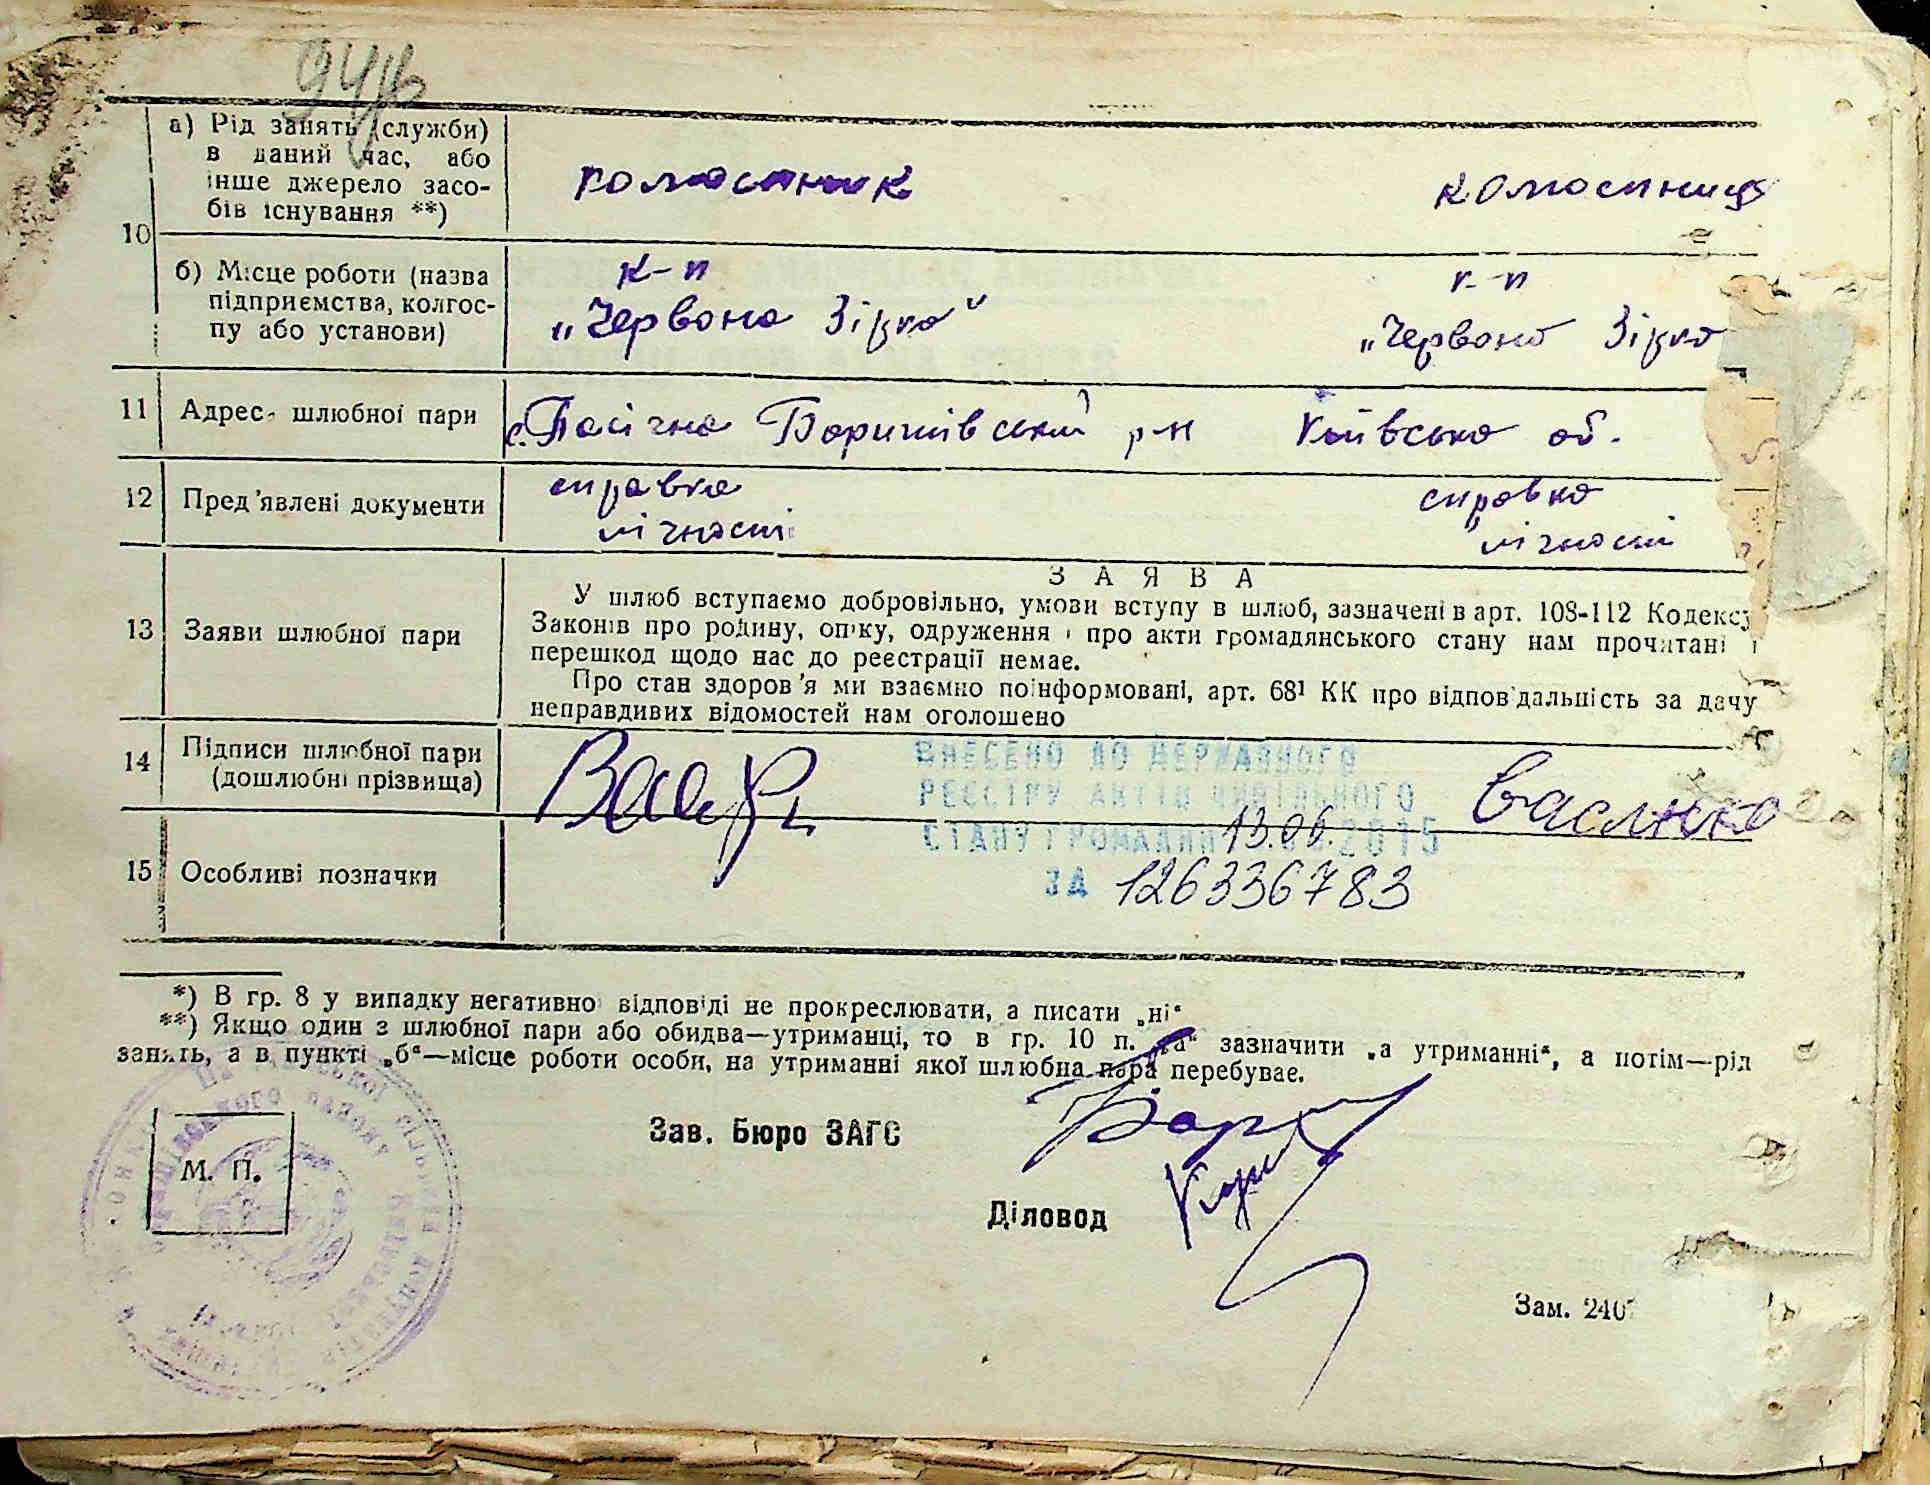 а) Рід занять (служби)
в даний час, або
інше джерело засо-
бів існування **)
10
колгоспник
колгоспниця
б) Місце роботи (назва
підприємства, колгос-
пу або установи)
к-п
„Червона Зірка"
к-п
„Червона Зірка
11 Адрес шлюбної пари
с. Пасічна Баришівський р-н Київська об.
12 Пред'явлені документи
справка
лічності
справка
лічності
13 Заяви шлюбної пари
ЗАЯВА
У шлюб вступаємо добровільно, умови вступу в шлюб, зазначені в арт. 108-112 Кодексу
Законів про родину, опіку, одруження і про акти громадянського стану нам прочитані і
перешкод щодо нас до реєстрації немає.
Про стан здоров'я ми взаємно поінформовані, арт. 68¹ КК про відповідальність за дачу
неправдивих відомостей нам оголошено
14 Підписи шлюбної пари
(дошлюбні прізвища)
ВНЕСЕНО ДО ДЕРЖАВНОГО
РЕЄСТРУ АКТІВ ЦИВІЛЬНОГО
СТАНУ ГРОМАДЯН 13.06.2015
ЗА 126336783
15 Особливі позначки
*) В гр. 8 у випадку негативної відповіді не прокреслювати, а писати „ні"
**) Якщо один з шлюбної пари або обидва—утриманці, то в гр. 10 п. „а" зазначити „а утриманні", а потім—рід
занять, а в пункті „б"—місце роботи особи, на утриманні якої шлюбна пара перебуває.
М. П.
Зав. Бюро ЗАГС
Діловод
Зам. 240